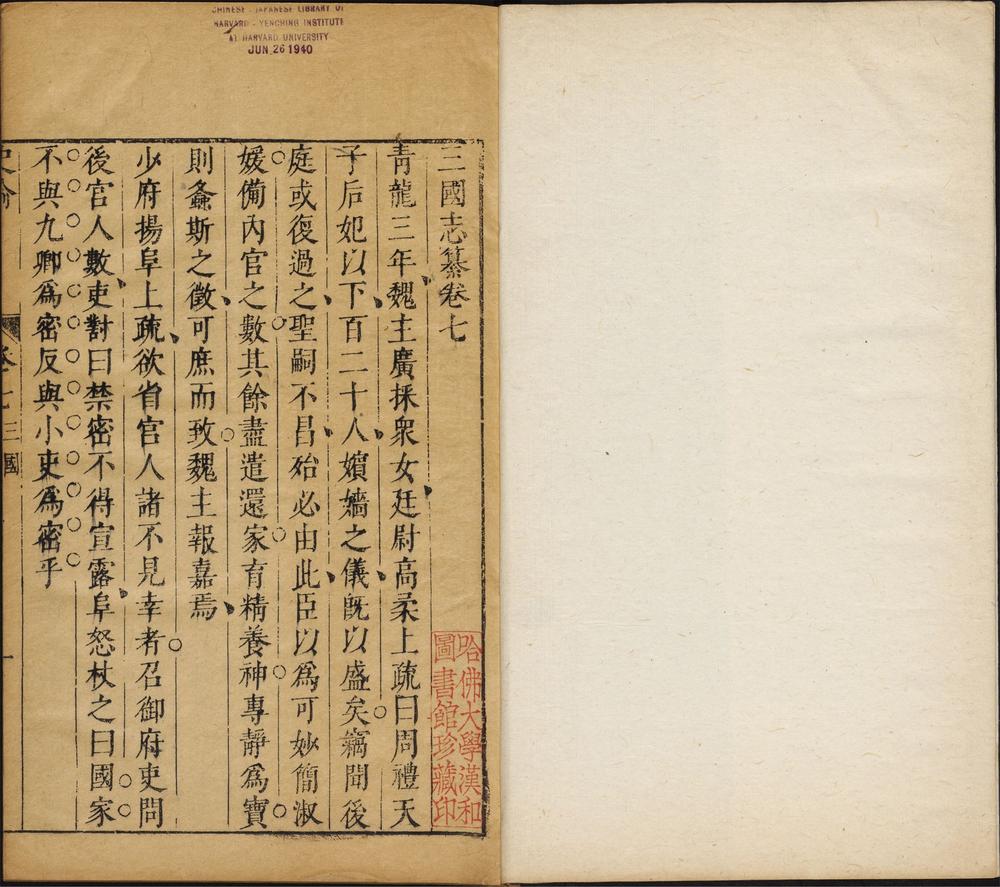 CHINESE - JAPANESE LIBRARY OF
HARVARD - YENCHING INSTITUTE
AT HARVARD UNIVERSITY
JUN 26 1940
三國志纂卷七
青龍三年魏主廣採衆女廷尉高柔上疏曰周禮天
子后妃以下百二十人嬪嬙之儀旣以盛矣竊聞後
庭或復過之聖嗣不昌殆必由此臣以爲可妙簡淑
媛備內官之數其餘盡遣還家育精養神專靜爲寶
則螽斯之徵可庶而致魏主報嘉焉
少府揚阜上疏欲省官人諸不見幸者召御府吏問
後官人數吏對曰禁密不得宣露阜怒杖之曰國家
不與九卿爲密反與小吏爲密乎
卷七 三國
一
哈佛大學漢和
圖書館珍藏印